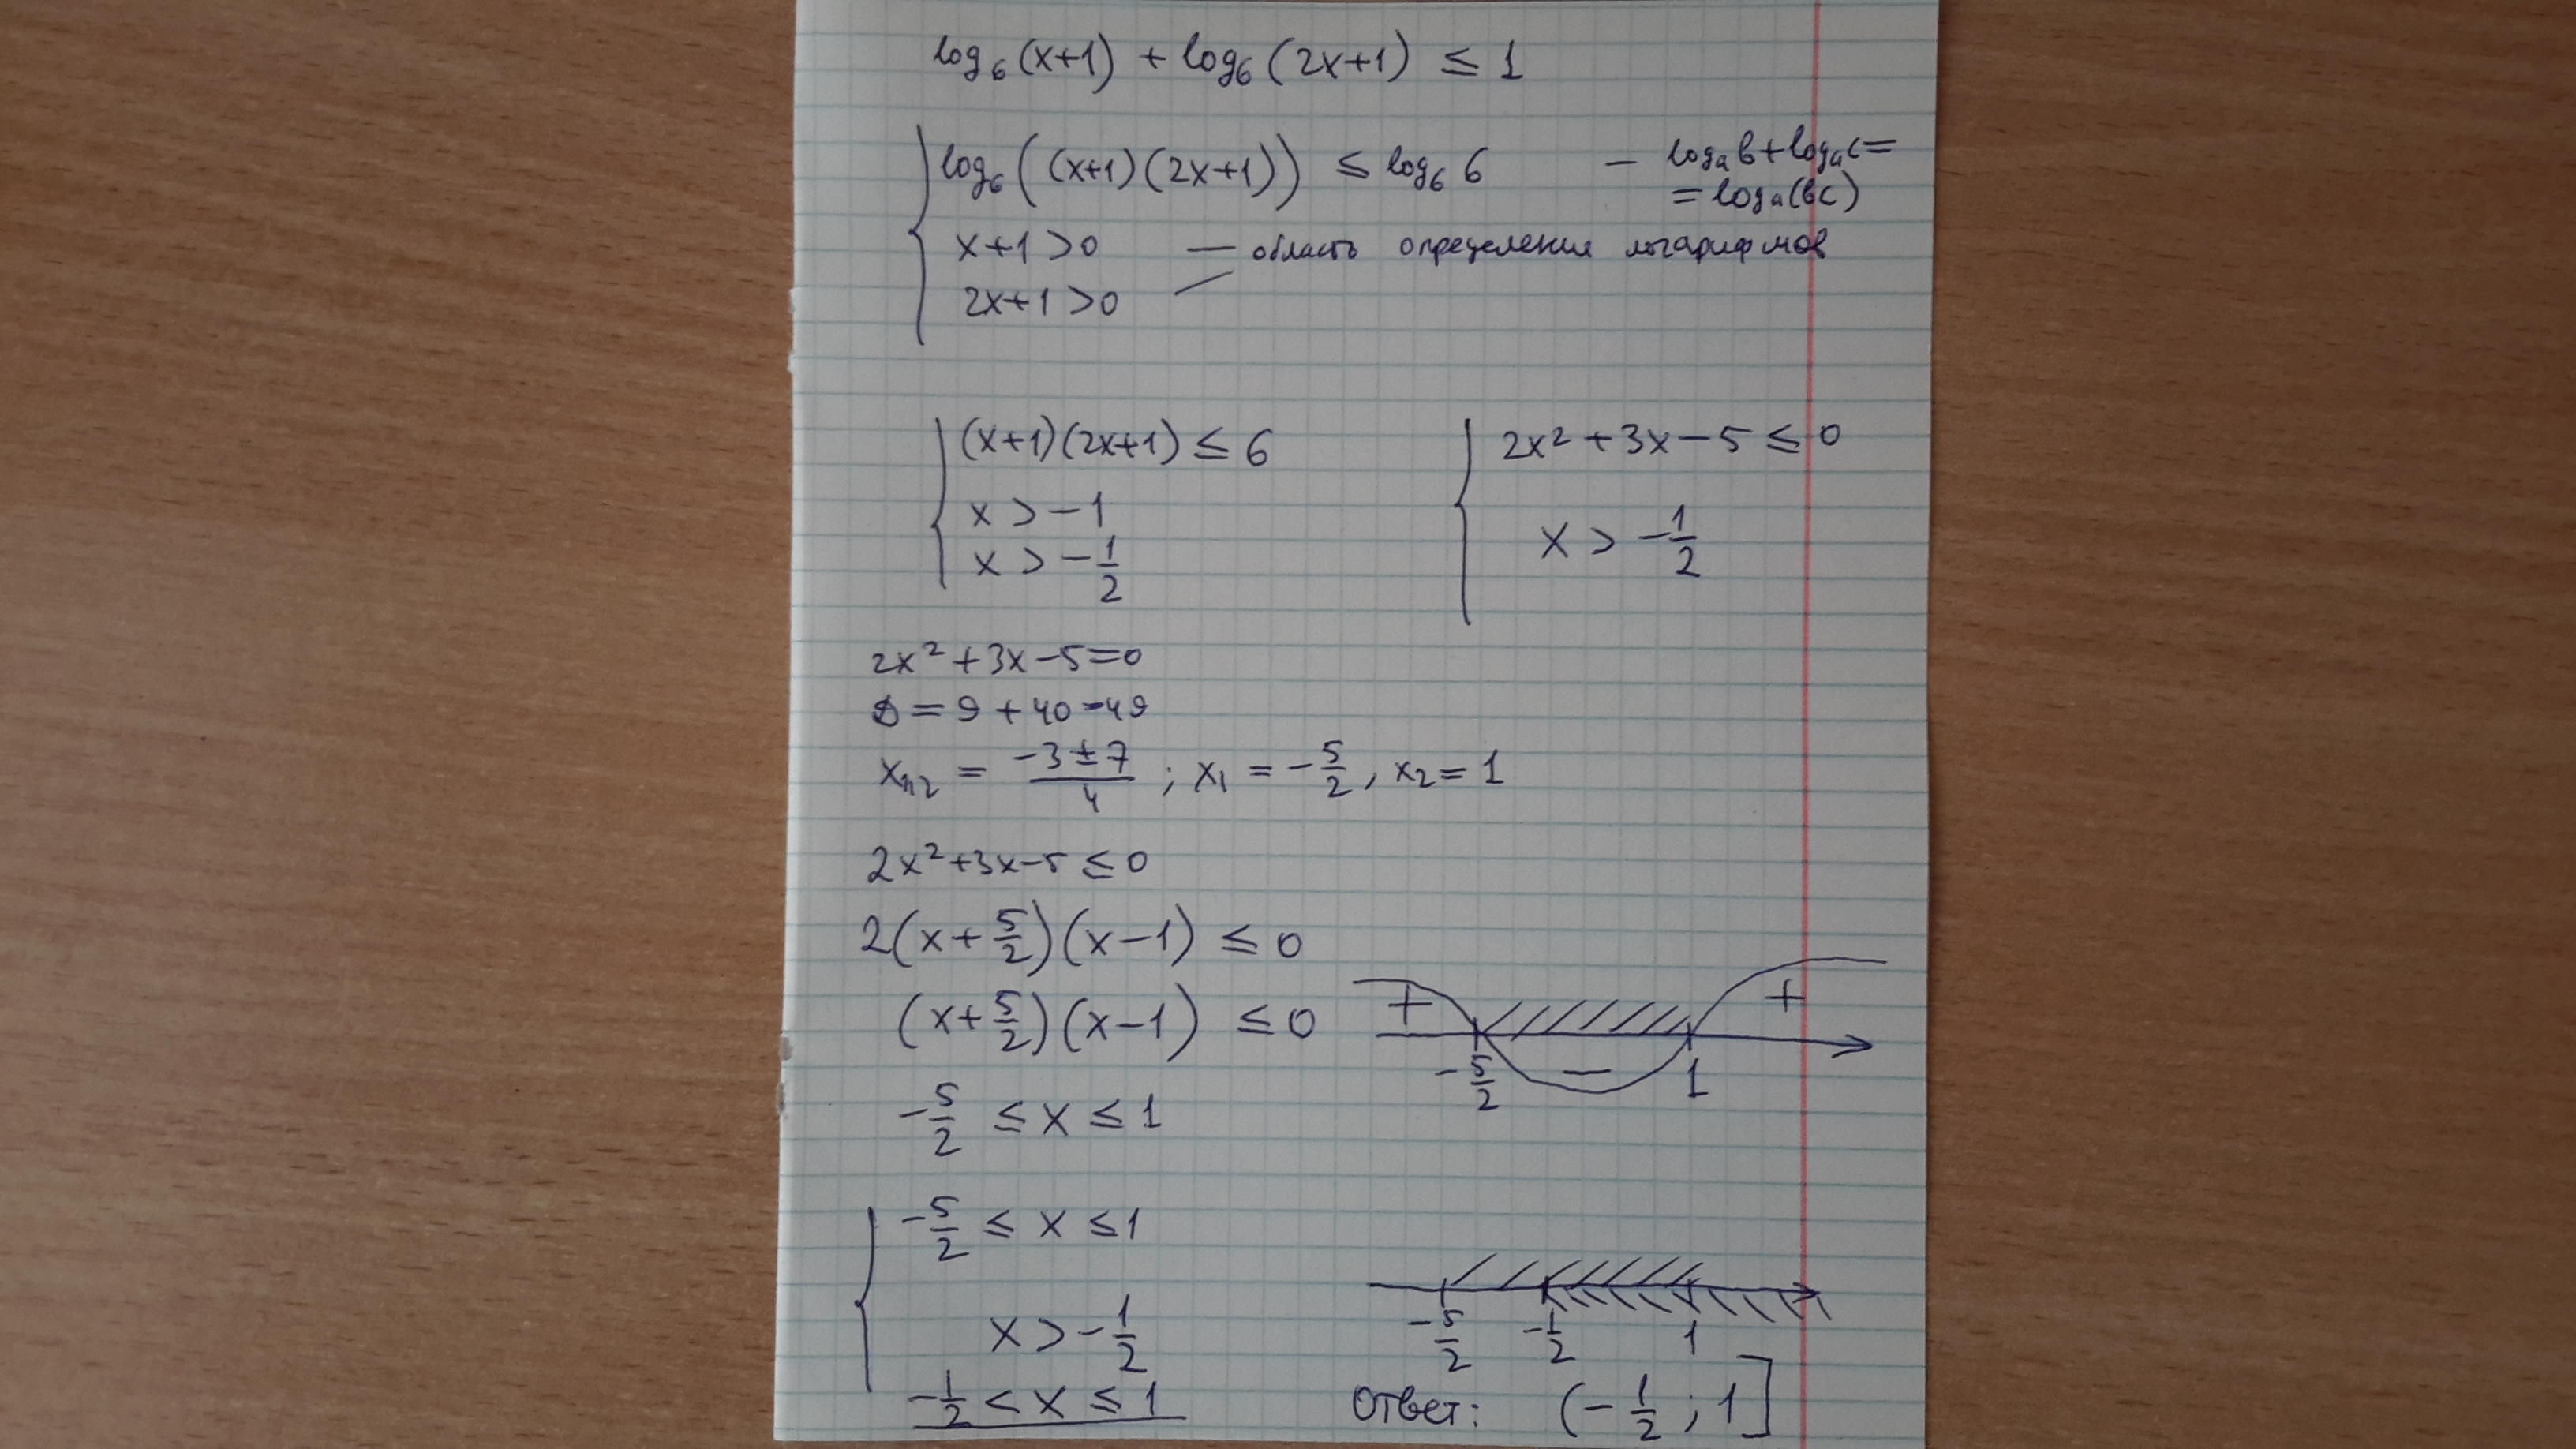 log₆(x+1) + log₆(2x+1) ≤ 1
log₆((x+1)(2x+1)) ≤ log₆6 — logₐb+logₐc=
=logₐ(bc)
x+1>0 — область определения логарифмов
2x+1>0
(x+1)(2x+1) ≤ 6
x > -1
x > -1/2
2x²+3x-5 ≤ 0
x > -1/2
2x²+3x-5=0
D=9+40=49
x₁,₂ = (-3±7)/4 ; x₁ = -5/2, x₂=1
2x²+3x-5 ≤ 0
2(x+5/2)(x-1) ≤ 0
(x+5/2)(x-1) ≤ 0
+ - +
-5/2 1
-5/2 ≤ x ≤ 1
-5/2 ≤ x ≤ 1
x > -1/2
-5/2 -1/2 1
-1/2 < x ≤ 1
Ответ: (-1/2; 1]